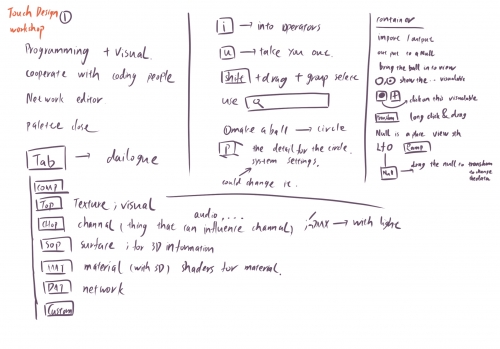 Touch Design ①
workshop
Programming + visual.
cooperate with coding people
Network editor
palette close
Tab → dailogue
Comp
Top Texture ; visual
Chop channal (thing that can influence channal) audio, ... ; → with light
Sop surface ; for 3D information
MAT material (with 3D) shaders for material.
DAT network
Custom
i → into operators
u → take you out.
shift + drag + group select
use
① make a ball → circle
P the detail for the circle.
system settings.
could change it.
container
import / output
out put to a Null
bring the ball into view
show the ... viewable
click on this viewable
long click & drag
Null is a place view sth
Null → drag the null to transform
to change